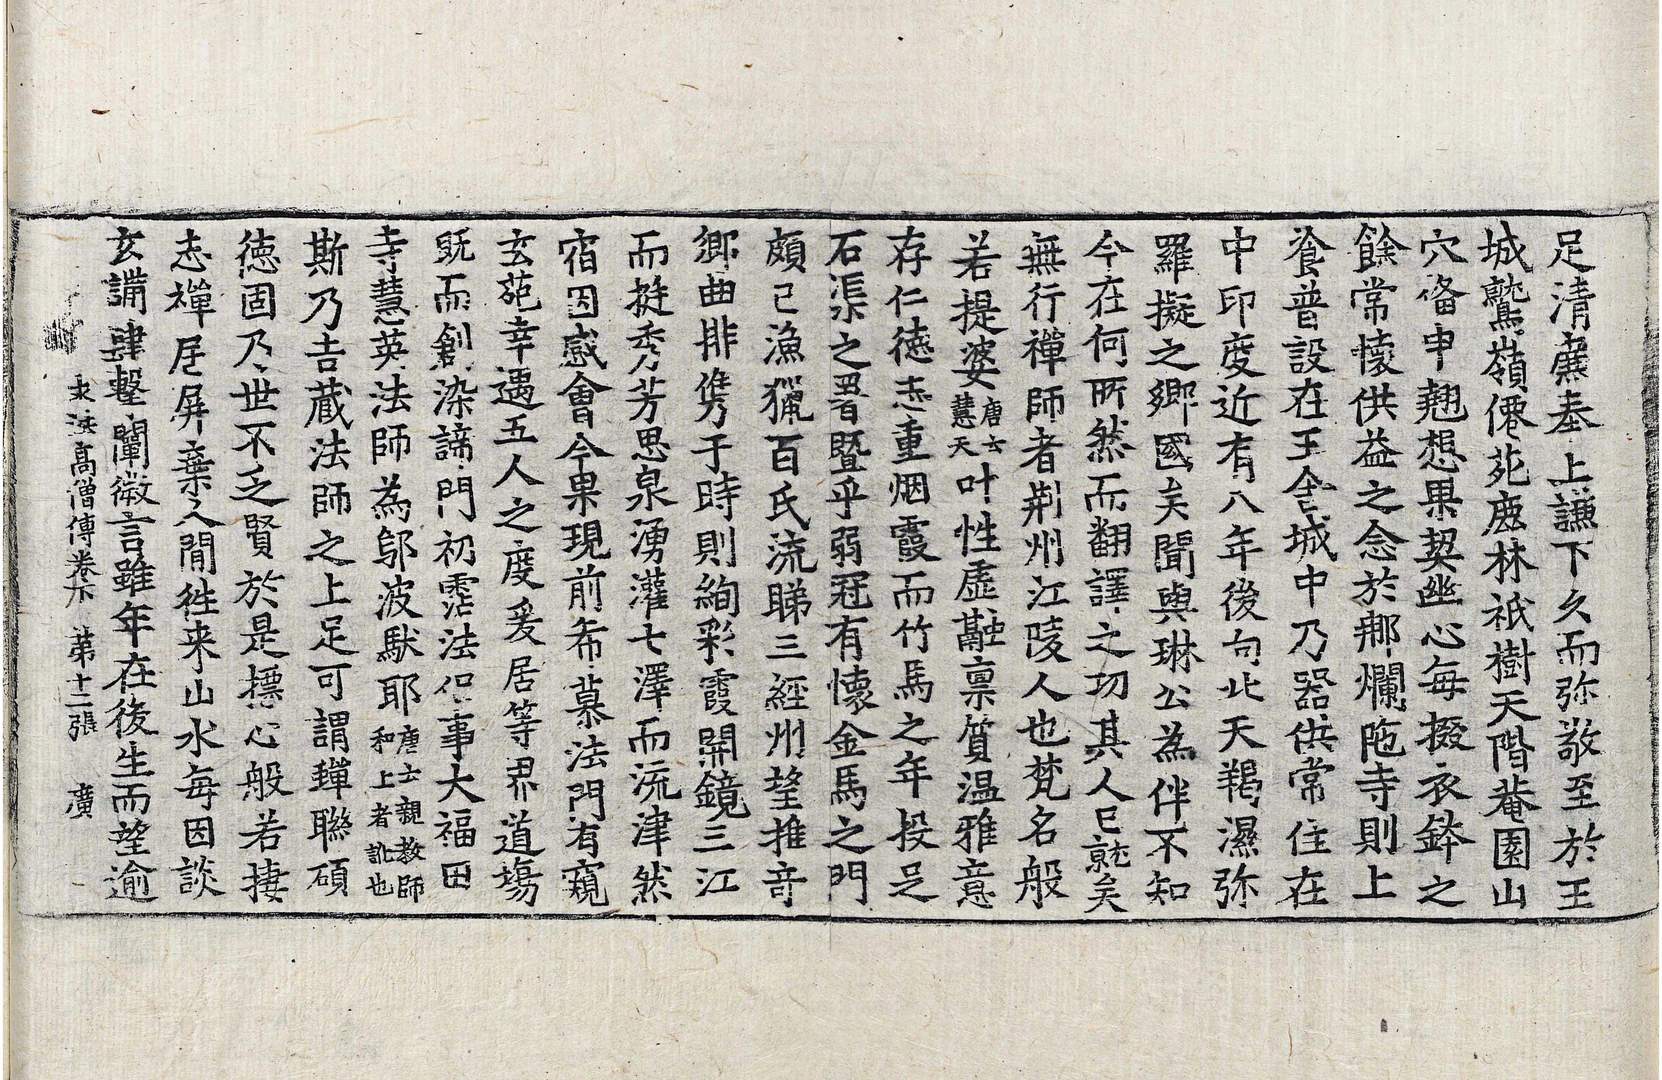 足清廉奉上謙下久而弥敬至於王
城鷲嶺僊苑鹿林祇樹天階菴園山
穴俻申翹想果契幽心每掇衣鉢之
餘常懷供益之念於那爛陁寺則上
飡普設在王舍城中乃器供常住在
中印度近有八年後向北天羯濕弥
羅擬之鄉國矣聞與琳公為伴不知
今在何所然而翻譯之功其人已就矣
無行禪師者荆州江陵人也梵名般
若提婆唐云慧天叶性虛融禀質温雅意
存仁德志重烟霞而竹馬之年投足
石渠之署暨乎弱冠有懷金馬之門
頗已漁獵百氏流睇三經州望推奇
鄉曲排儁于時則絢彩霞開鏡三江
而挺秀芳思泉湧灌七澤而流津然
宿因感會今果現前希慕法門有窺
玄苑幸遇五人之度爰居等界道場
既而創染諦門初霑法侶事大福田
寺慧英法師為鄔波馱耶唐云親教師和上者訛也
斯乃吉藏法師之上足可謂蟬聯碩
德固乃世不乏賢於是標心般若捿
志禪居屏棄人間徃来山水每因談
玄講肆擊闡微言雖年在後生而望逾
求法高僧傳卷下 第十二張 廣